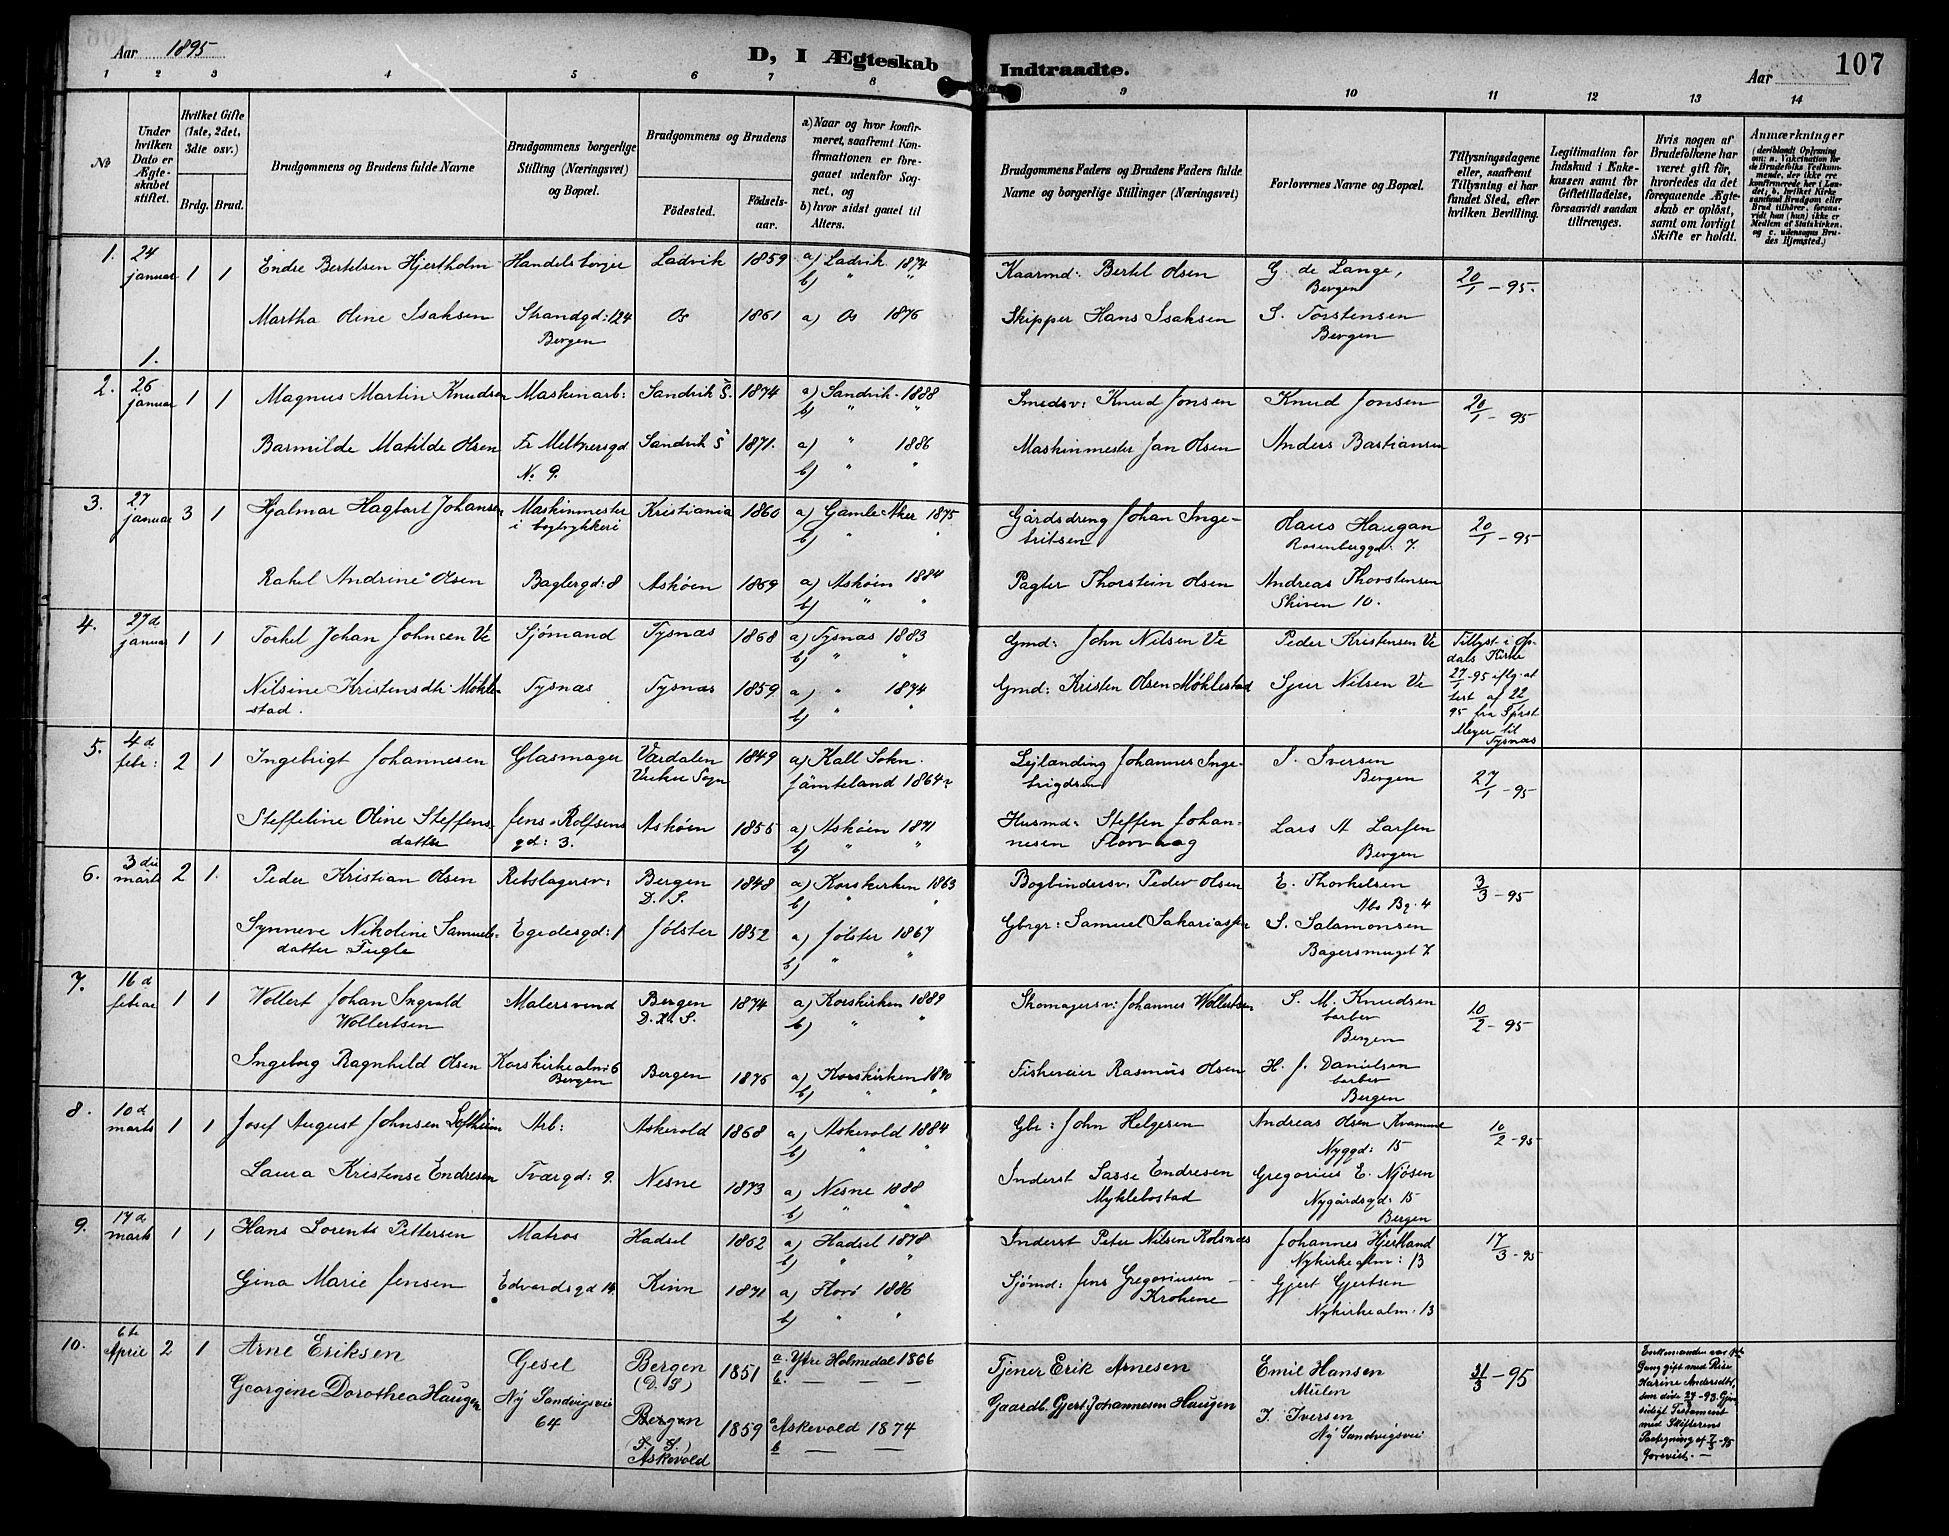 Aar 1895
D, I Ægteskab Indtraadte.
Aar
107
1 2 3 4 5 6 7 8 9 10 11 12 13 14
No
Under hvilken Dato er Ægteskabet stiftet.
Hvilket Gifte (1ste, 2det, 3die osv.)
Brdg. Brud.
Brudgommens og Brudens fulde Navne
Brudgommens borgerlige Stilling (Næringsvei) og Bopæl.
Brudgommens og Brudens
Födested.
Födselsaar.
a) Naar og hvor konfirmeret, saafremt Konfirmationen er foregaaet udenfor Sognet, og
b) hvor sidst gaaet til Alters.
Brudgommens Faders og Brudens Faders fulde Navne og borgerlige Stillinger (Næringsvei)
Forlovernes Navne og Bopæl.
Tillysningsdagene eller, saafremt Tillysning ei har fundet Sted, efter hvilken Bevilling.
Legitimation for Indskud i Enkekassen samt for Giftetilladelse, forsaavidt saadan tiltrænges.
Hvis nogen af Brudefolkene har været gift för, hvorledes da det foregaaende Ægteskab er oplöst, samt om lovligt Skifte er holdt.
Anmærkninger
(deriblandt Oplysning om: a. Vakcination for de Brudefolks Vedkommende, der ikke ere konfirmerede her i Landet; b. hvilket Kirkesamfund Brudgom eller Brud tilhörer, forsaavidt han (hun) ikke er Medlem af Statskirken, og c. udensogns Brudes Hjemsted.)
1. 24 januar 1 1 Endre Bertelsen Hjertholm Handelsborger Ladvik 1859 a) Ladvik 1874 Kaarmd: Bertel Olsen G. de Lange, 20/1 - 95.
b) " " Bergen
Martha Oline Isaksen Strandgd: 124 Os 1861 a) Os 1876 Skipper Hans Isaksen S. Torstensen
1. Bergen Bergen
2. 26 januar 1 1 Magnus Martin Knudsen Maskinarb: Sandvik S. 1874 a) Sandvik 1888 Smedsv: Knud Jonsen Knud Jonsen 20/1 - 95
b) " "
Barmilde Matilde Olsen Fr Meltzersgd Sandvik S 1871. a) " 1886 Maskinmester Jan Olsen Anders Bastiansen
No 9. b) " "
3. 27 januar 3 1 Hjalmar Hagbart Johansen Maskinmester Kristiania 1860 a) Gamle Aker 1875 Gårdsdreng Johan Inge- Claus Haugan 20/1 - 95
i bogtrykkeri b) " " britsen Rosenberggd: 7.
Rakel Andrine Olsen Baglergd: 8 Askøen 1869 a) Askøen 1884 Pagter Thorstein Olsen Andreas Thorstensen
b) " " Skiven 10.
4. 27d januar 1 1 Torkel Johan Johnsen Ve Sjömand Tysnæs 1868 a) Tysnæs 1883 Gmd: John Nilsen Ve Peder Kristensen Ve Tillyst i Op-
b) " " dals Kirke
Nilsine Kristensdtr Møkle- Tysnæs Tysnæs 1859 a) " 1874 Gmd: Kristen Olsen Møklestad Sjur Nilsen Ve 27/1 - 95 iflg. at
stad. b) " " test af 22
95 fra Spræst
Meyer til
Tysnæs
5. 4 d febr: 2 1 Ingebrigt Johannesen Glasmager Værdalen 1849 a) Kall Sokn. Lejlænding Johannes Inge- S. Iversen 27/1 - 95
Sogn Jämteland 1864 brigdsen Bergen
Steffeline Oline Steffens- Jens Rolfsens Askøen 1855 a) Askøen 1871 Husmd: Steffen Johan- Lars A Larsen
datter gd: 3. b) " " nesen Florvaag Bergen
6. 3 die märts 2 1. Peder Kristian Olsen Rebslagersv: Bergen 1848 a) Korskirken 1863 Bogbindersv. Peder Olsen E. Thorkelsen 3/3 - 95
D. S. b) " "
Synneve Nikoline Samuels- Egedesgd: 1 Jølster 1852 a) Jølster 1867 Gbrgr: Samuel Sakariassen S. Salamonsen
datter Fugle b) " " Bagersmuget 7
7. 16 d febrar 1 1 Wollert Johan Ingvald Malersvend Bergen 1874 a) Korskirken 1889 Skomagersv: Johannes Wollertsen S. M. Knudsen 10/2 - 95
Wollertsen D. K. S. b) " " barber
Bergen
Ingeborg Ragnhild Olsen Korskirkealm: 6 Bergen 1875 a) Korskirken 1890 Fiskeveier Rasmus Olsen H. J. Danielsen
Bergen b) " " barber
Bergen
8. 10 d marts 1 1 Josef August Johnsen Loftheim Arb: Askevold 1868 a) Askevold 1884 Gbr: John Helgesen Andreas Olsen Kvamme 10/2 - 95
b) " " Nyggd: 15
Laura Kristense Endresen Tværgd: 9. Nesne 1873 a) Nesne 1888 Inderst Sasse Endresen Gregorius E. Njøsen
b) " " Myklebostad Nygårdsgd: 15
Bergen
9. 17 d marts 1 1 Hans Lorents Pettersen Matros Hadsel 1862 a) Hadsel 1878 Inderst Peter Nilsen Kolsnes Johannes Hjertland 17/3 - 95
b) " " Nykirkealm: 13
Gina Marie Jensen Edvardsgd 14 Kinn 1871 a) Florø 1886 Sjømd: Jens Gregoriusen Gjert Gjertsen
b) " " Krokene Nykirkealm: 13
10. 6te April 2 1 Arne Eriksen Gesel Bergen 1851 a. Ytre Holmedal 1866 Tjener Erik Arnesen Emil Hansen 31/3 - 95
(D. S) b. — — Mulen
Georgine Dorothea Haugen Ny Sandvigsvei Bergen 1859 a Askevold 1874 Gaardb. Gjert Johannesen Haugen I. Iversen
64 (S. S.) b — — Ny Sandvigsvei
Askevold
Enkemanden var 1ste
Gang gift med
Karine Andersdtr,
som døde 27 - 93.
Testament
med Skifterens
Paategning af 7/3 - 95
forevist. —